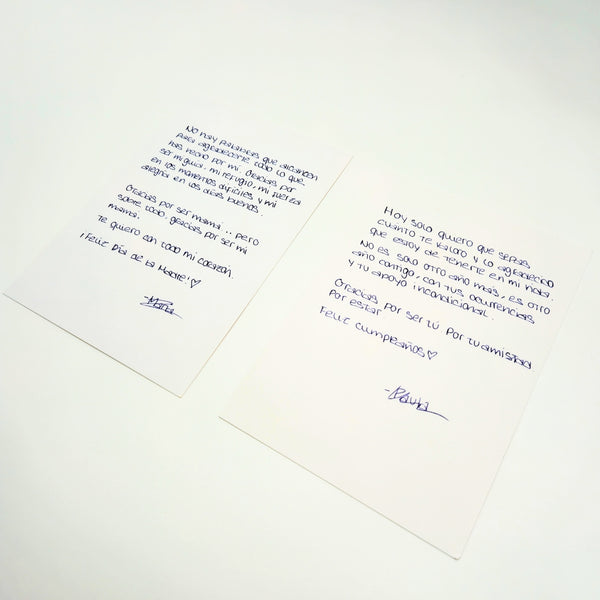 No hay palabras que alcancen
para agradecerte todo lo que
has hecho por mi. Gracias por
ser mi guia, mi refugio, mi fuerza
en los momentos dificiles y mi
alegria en los dias buenos.
Gracias por ser mamá... pero
sobre todo, gracias por ser mi
mamá.
Te quiero con todo mi corazón.
¡Feliz Día de la Madre! ♡
Hoy solo quiero que sepas
cuanto te valoro y lo agradecido
que estoy de tenerte en mi vida.
No es solo otro año más, es otro
año contigo, con tus ocurrencias
y tu apoyo incondicional.
Gracias por ser tú Por tu amistad
Por estar
Feliz cumpleaños ♡
-Paula